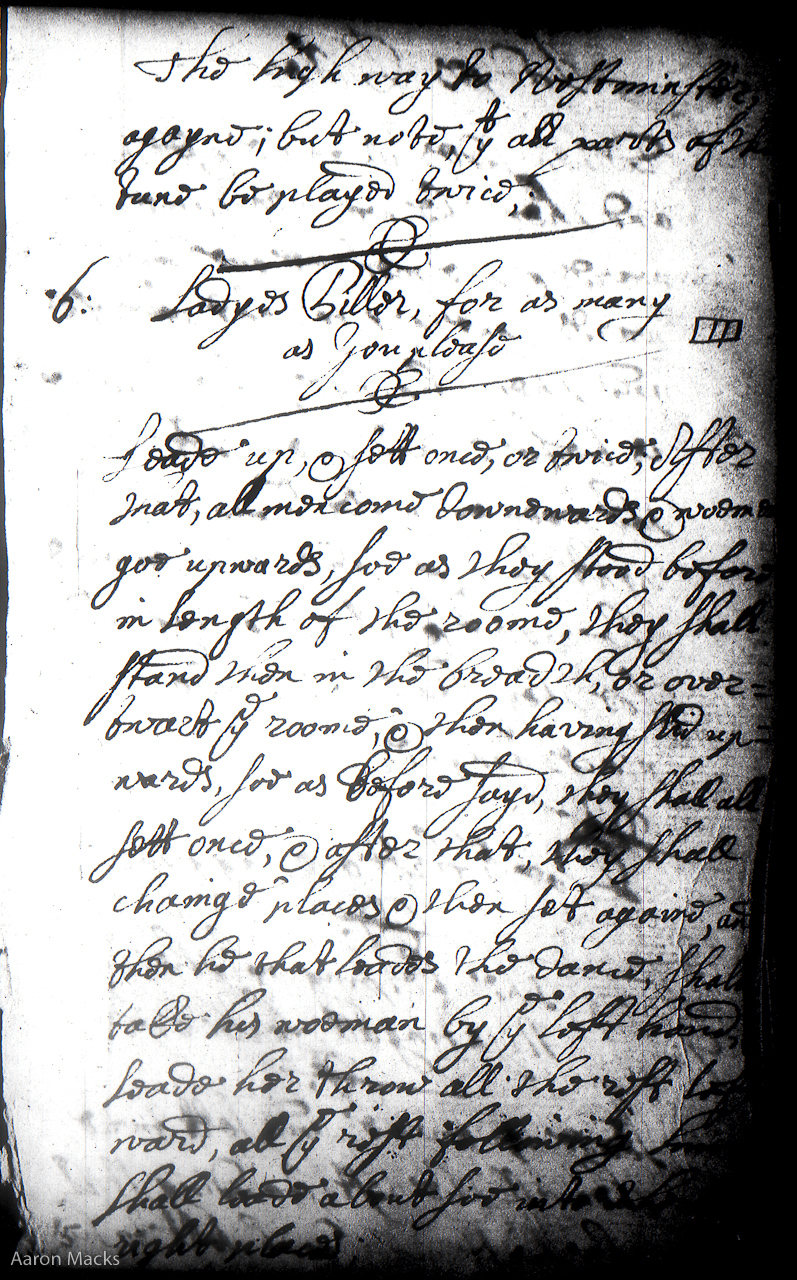 The high way to Westminster,
agayne; but note, yt all parts of the
tune be played twice;
6: Ladyes Biller, for as many
as you please
III
Leade up, & sett once, or twice; After
that, all men come downewards & woemen
goe upwards, soe as they stood before
in length of the roome, they shall
stand then in the breadth, or over=
twart ye roome, & then having slid up=
wards, soe as before sayd, they shall all
sett once, & after that, they shall
chainge places & then set againe, and
then he that leades the dance, shall
take his woeman by ye left hand,
Leade her throw all the rest
ward, all ye rest following
shall leade about soe into
right places;
Aaron Macks